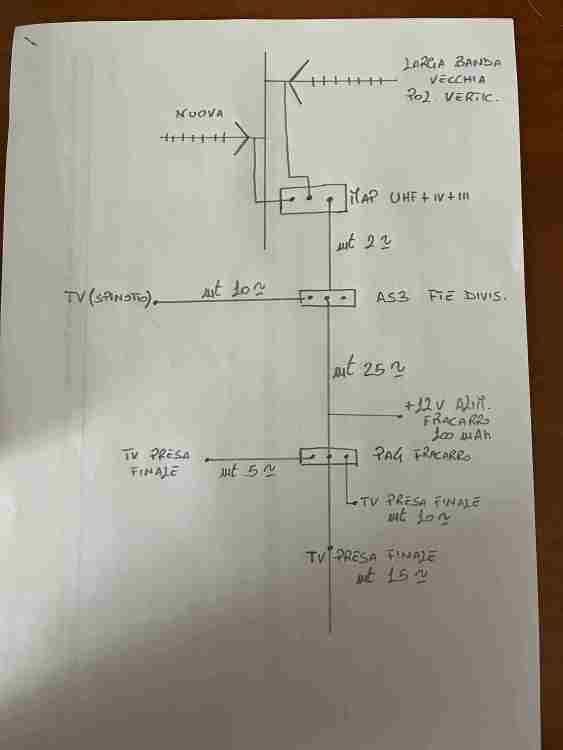 LARGA BANDA
VECCHIA
POL VERTIC.
NUOVA
MAP UHF + IV + III
mt 2 ≃
mt 10 ≃
TV (SPINOTTO)
AS3 FTE DIVIS.
mt 25 ≃
+12V ALIM.
FRACARRO
100 mAh
TV PRESA
FINALE
mt 5 ≃
PA4 FRACARRO
TV PRESA FINALE
mt 10 ≃
TV PRESA FINALE
mt 15 ≃